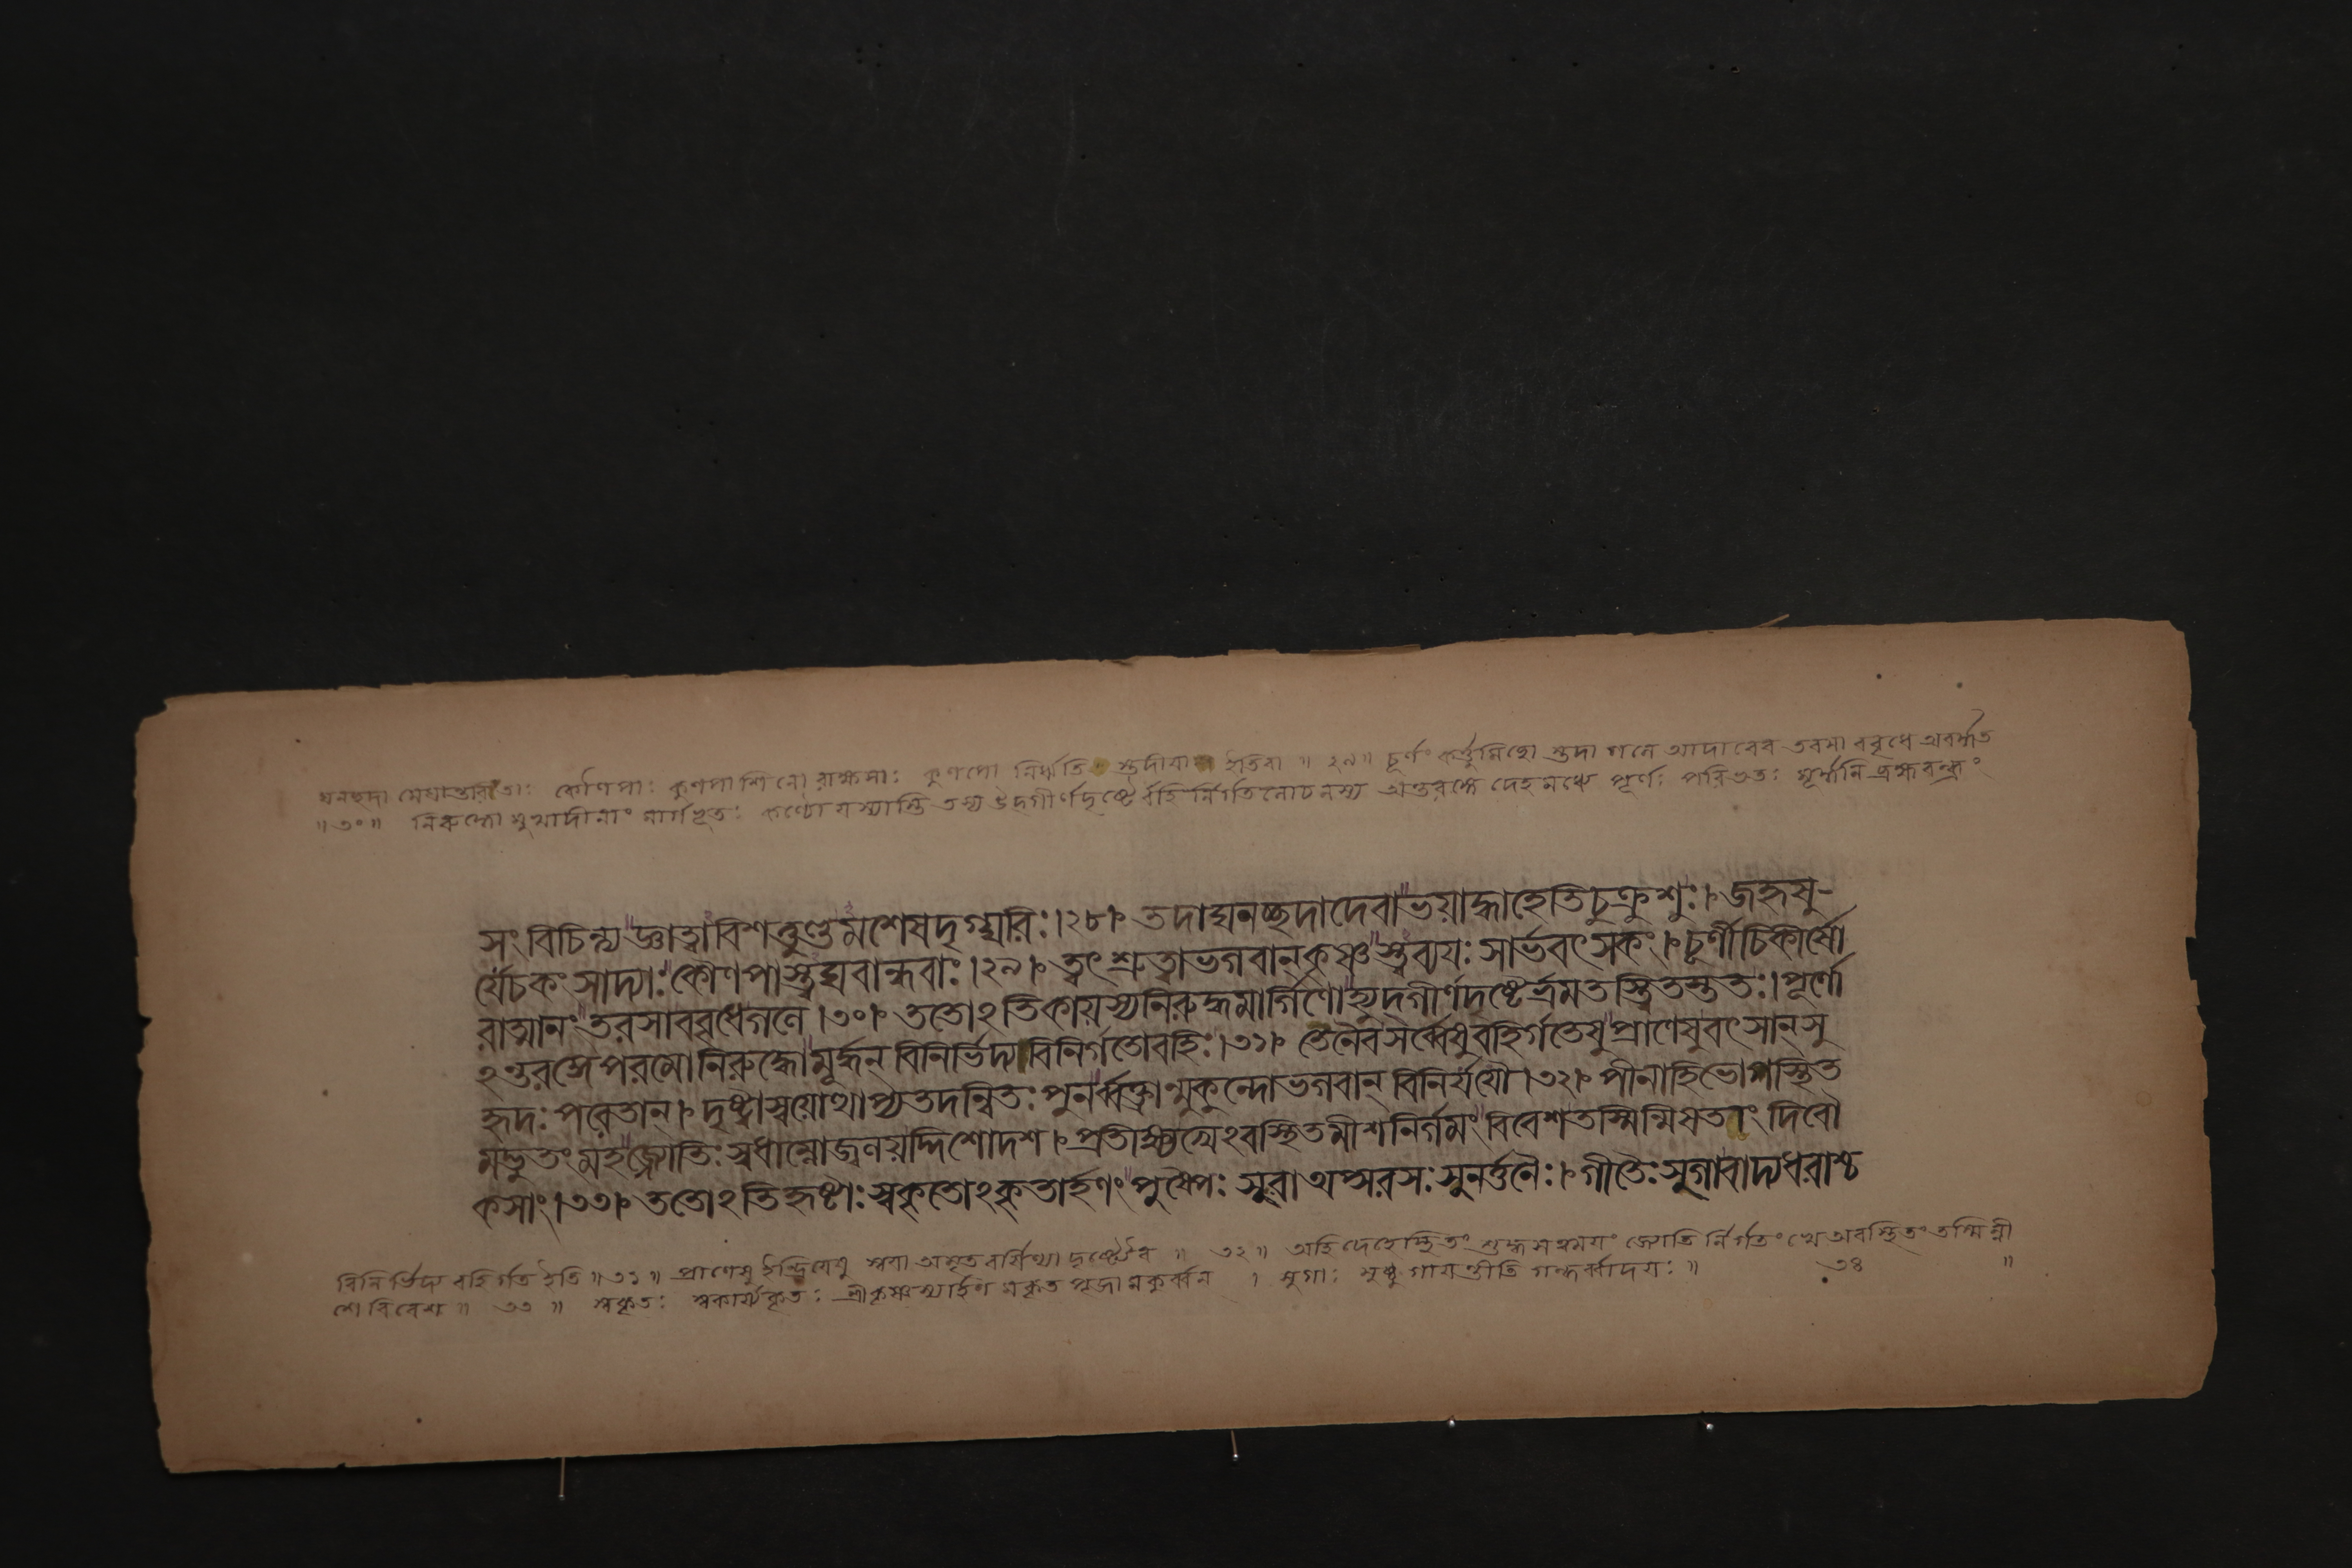 ঘনছদা মেঘান্তরিতাঃ কৌণপাঃ কুণপাশিনো রাক্ষসাঃ কুণপো নির্ঋতি স্তদীবা ইতিবা ॥ ২৯॥ চূর্ণং কর্ত্তুমিছো স্তদা গলে আদাবেব তরসা ববৃধে অবর্দ্ধত
॥৩০॥ নিরুদ্ধো মুখাদীনাং মার্গভূতঃ কণ্ঠো যস্যাস্তি তস্য উদ্গীর্ণদৃষ্টে র্বহির্নির্গতলোচনস্য অন্তরঙ্গে দেহমধ্যে পূর্ণঃ পরিভৃতঃ মূর্দ্ধনি ব্রহ্মরন্ধ্রং
সংবিচিন্ত্যজ্ঞাত্বাবিশত্তুণ্ডমশেষদৃগ্ঘরিঃ।২৮।৽ তদাঘনচ্ছদাদেবাভয়াদ্ধাহেতিচুক্রুশুঃ।৽ জহৃষু-
র্যেচকংসাদ্যাঃকৌণপাস্ত্বঘবান্ধবাঃ।২৯।৽ তৎ শ্রুত্বাভগবান্কৃষ্ণস্ত্বব্যয়ঃ সার্ভবৎসকং।৽ চূর্ণীচিকীর্ষো
রাত্মানংতরসাববৃধেগলে।৩০।৽ ততোঽতিকায়স্যনিরুদ্ধমার্গিণোহ্যুদ্গীর্ণদৃষ্টের্ভ্রমতস্ত্বিতস্ততঃ।পূর্ণো
ঽন্তরঙ্গেপবনোনিরুদ্ধোমূর্দ্ধন্ বিনির্ভিদ্যবিনির্গতোবহিঃ।৩১।৽ তেনৈবসর্ব্বেষুবহির্গতেষুপ্রাণেষুবৎসান্সু
হৃদঃপরেতান্।৽ দৃষ্ট্বাস্বয়োত্থাপ্যতদন্বিতঃপুনর্ব্বক্ত্রান্মুকুন্দোভগবান্ বিনির্যযৌ।৩২।৽ পীনাহিভোগস্থিত
মদ্ভুতংমহজ্জ্যোতিঃস্বধাম্নোজ্বলয়দ্দিশোদশ।৽ প্রতীক্ষ্যখেঽবস্থিতমীশনির্গমংবিবেশতস্মিন্মিষতাং দিবৌ
কসাং।৩৩।৽ ততোঽতিহৃষ্টাঃস্বকৃতোঽকৃতার্হণংপুষ্পৈঃ সুরাঅপ্সরসঃসুনর্ত্তনৈঃ।৽ গীতৈঃসুগাবাদ্যধরাশ্চ
বিনির্ভিদ্য বহির্গত ইতি ॥৩১॥ প্রাণেষু ইন্দ্রিয়েষু স্বয়া অমৃত বর্ষিণ্যা দৃষ্ট্যৈব ॥ ৩২॥ অহি দেহেস্থিতং শুদ্ধসত্ত্বময়ং জ্যোতি র্নির্গতং খে অবস্থিতং তস্মিন্নী
শে বিবেশ ॥ ৩৩ ॥ স্বকৃতঃ স্বকার্য্যকৃতঃ শ্রীকৃষ্ণস্যার্হণ মকৃত পূজামকুর্ব্বন । সুগাঃ সুষ্ঠু গায়ন্তীতি গন্ধর্ব্বাদয়ঃ ॥ ৩৪ ॥